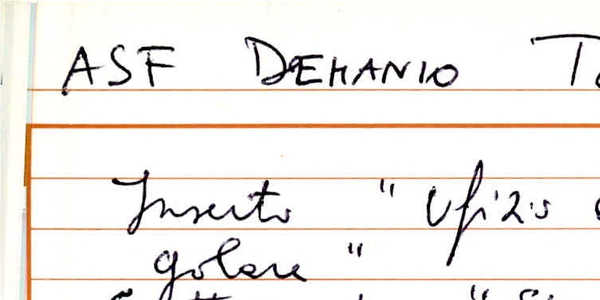 ASF DEMANIO
Inserto " Ufizi
golare "